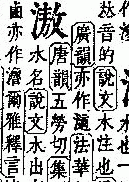 𠀤音的說文水注也
廣韻亦作渧法華
滶
唐韻五勞切集
水名說文水出
鹵亦作滷爾雅釋言